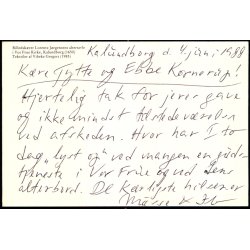 Billedskærer Lorentz Jørgensens altertavle
i Vor Frue Kirke, Kalundborg (1650)
Tekstiler af Vibeke Gregers (1985)
Kalundborg d. 4 juni, 1988
Kære Jytte og Ebbe Kornerup!
Hjertelig tak for jeres gave
og ikke mindst tilstedeværelsen
ved afskeden. Hvor har I to
dog "lyst op" ved mangen en guds-
tjeneste i Vor Frue og ved dens
alterbord. De kærligste hilsener